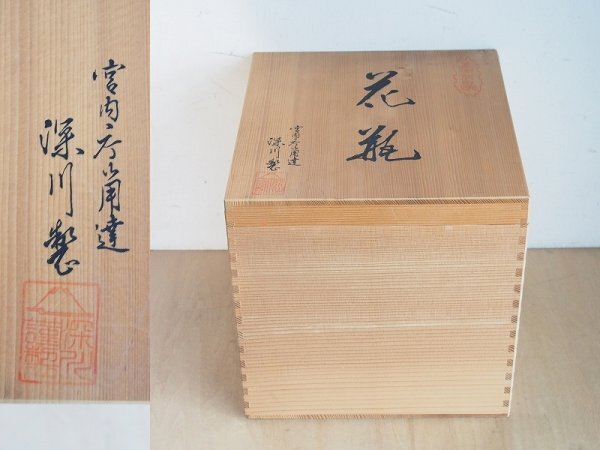 宮内庁御用達
深川製
深川
謹製
花瓶
宮内庁御用達
深川製